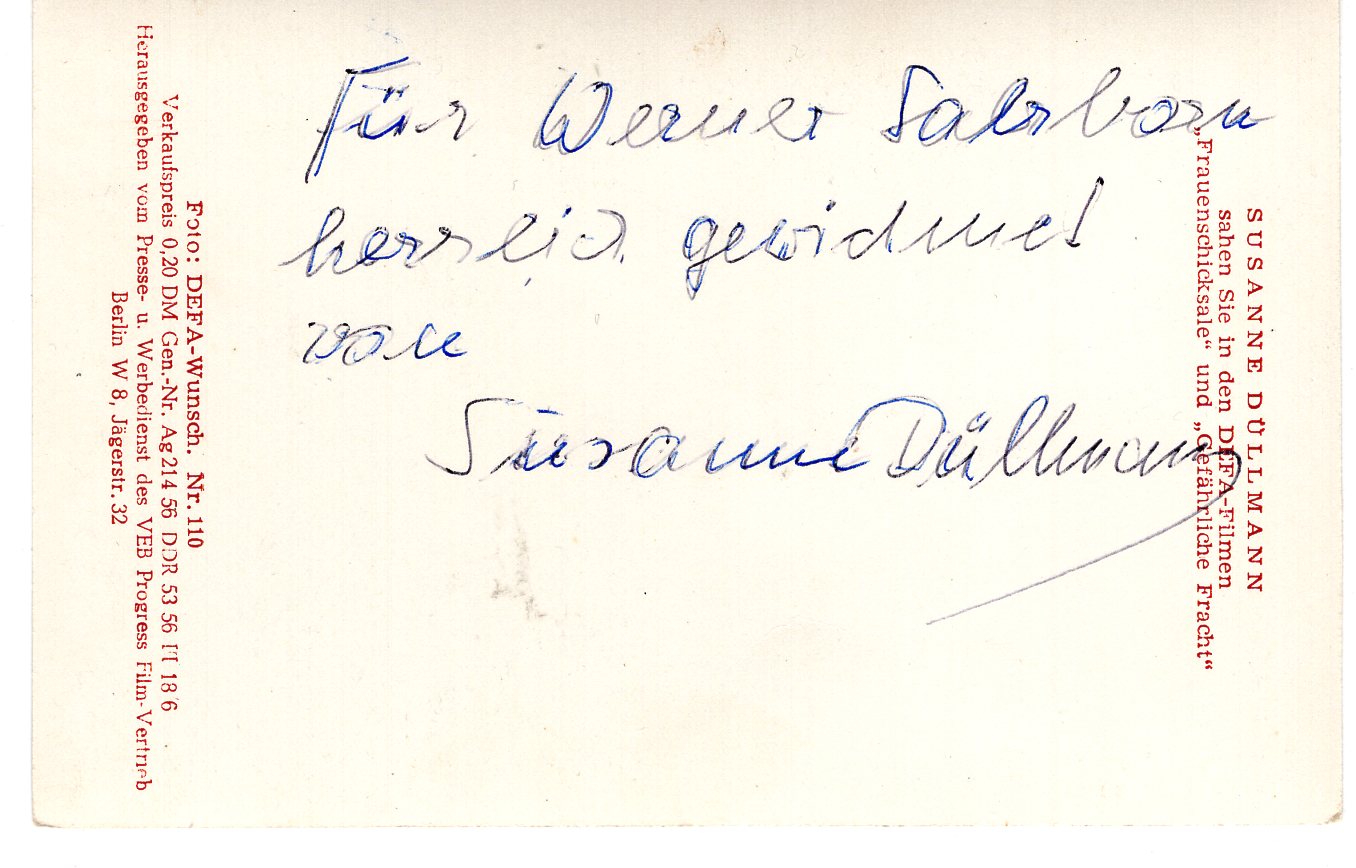 Für Werner Salzborn
herzlich gewidmet
von
Susanne Düllmann
SUSANNE DÜLLMANN
sahen Sie in den DEFA-Filmen
„Frauenschicksale“ und „Gefährliche Fracht“
Foto: DEFA-Wunsch. Nr. 110
Verkaufspreis 0,20 DM Gen.-Nr. Ag 214 56 DDR 53 56
Herausgegeben vom Presse- u. Werbedienst des VEB Progress Film-Vertrieb
Berlin W 8, Jägerstr. 32